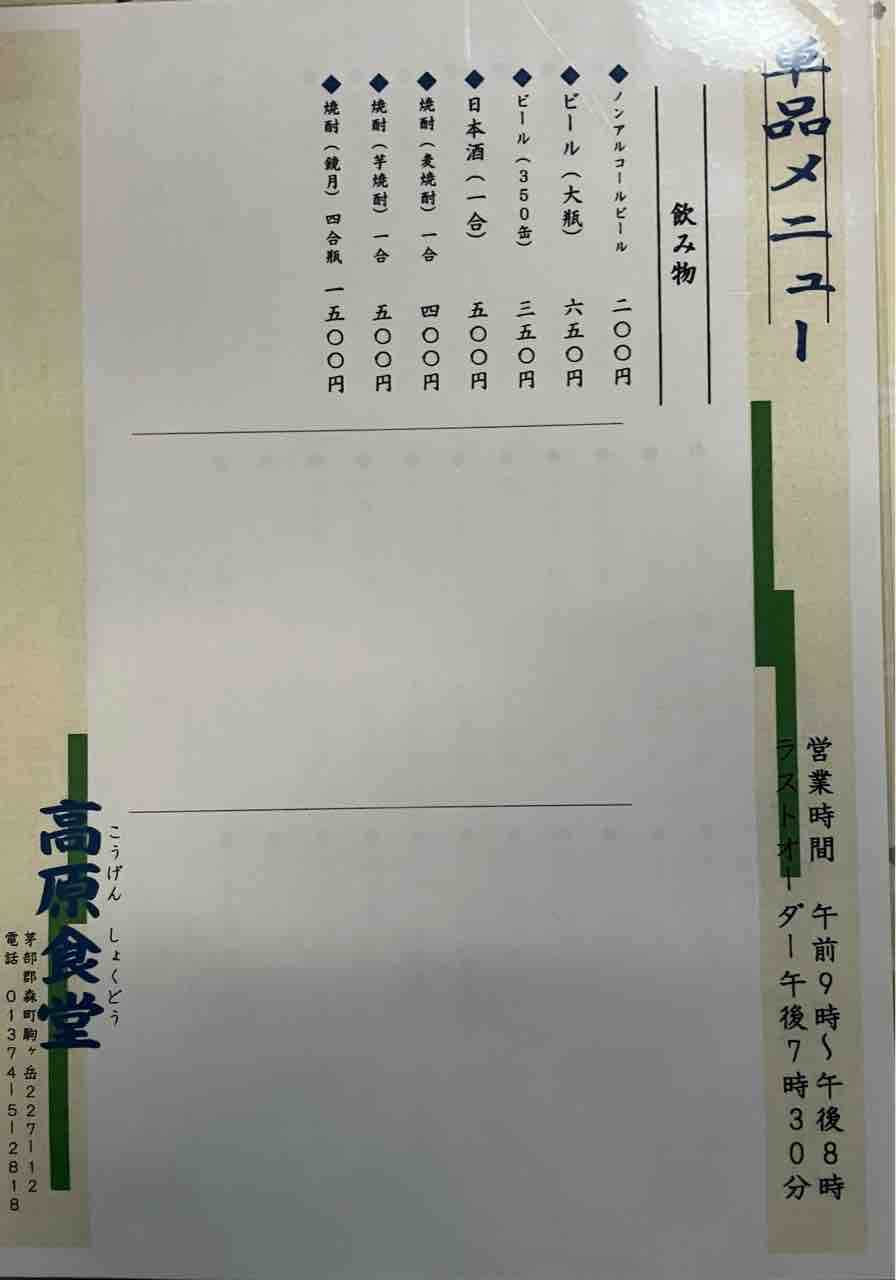 単品メニュー
営業時間 午前9時〜午後8時
ラストオーダー午後7時30分
飲み物
◆ノンアルコールビール 二〇〇円
◆ビール(大瓶) 六五〇円
◆ビール(350缶) 三五〇円
◆日本酒(一合) 五〇〇円
◆焼酎(麦焼酎)一合 四〇〇円
◆焼酎(芋焼酎)一合 五〇〇円
◆焼酎(鏡月)四合瓶 一五〇〇円
こうげん しょくどう
高原食堂
茅部郡森町駒ヶ岳227-12
電話 01374-5-2818